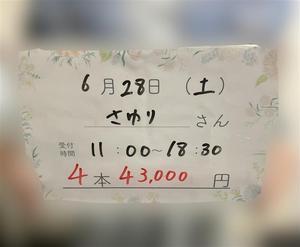 6月28日（土）
さゆりさん
受付時間 11:00~18:30
4本 43,000円